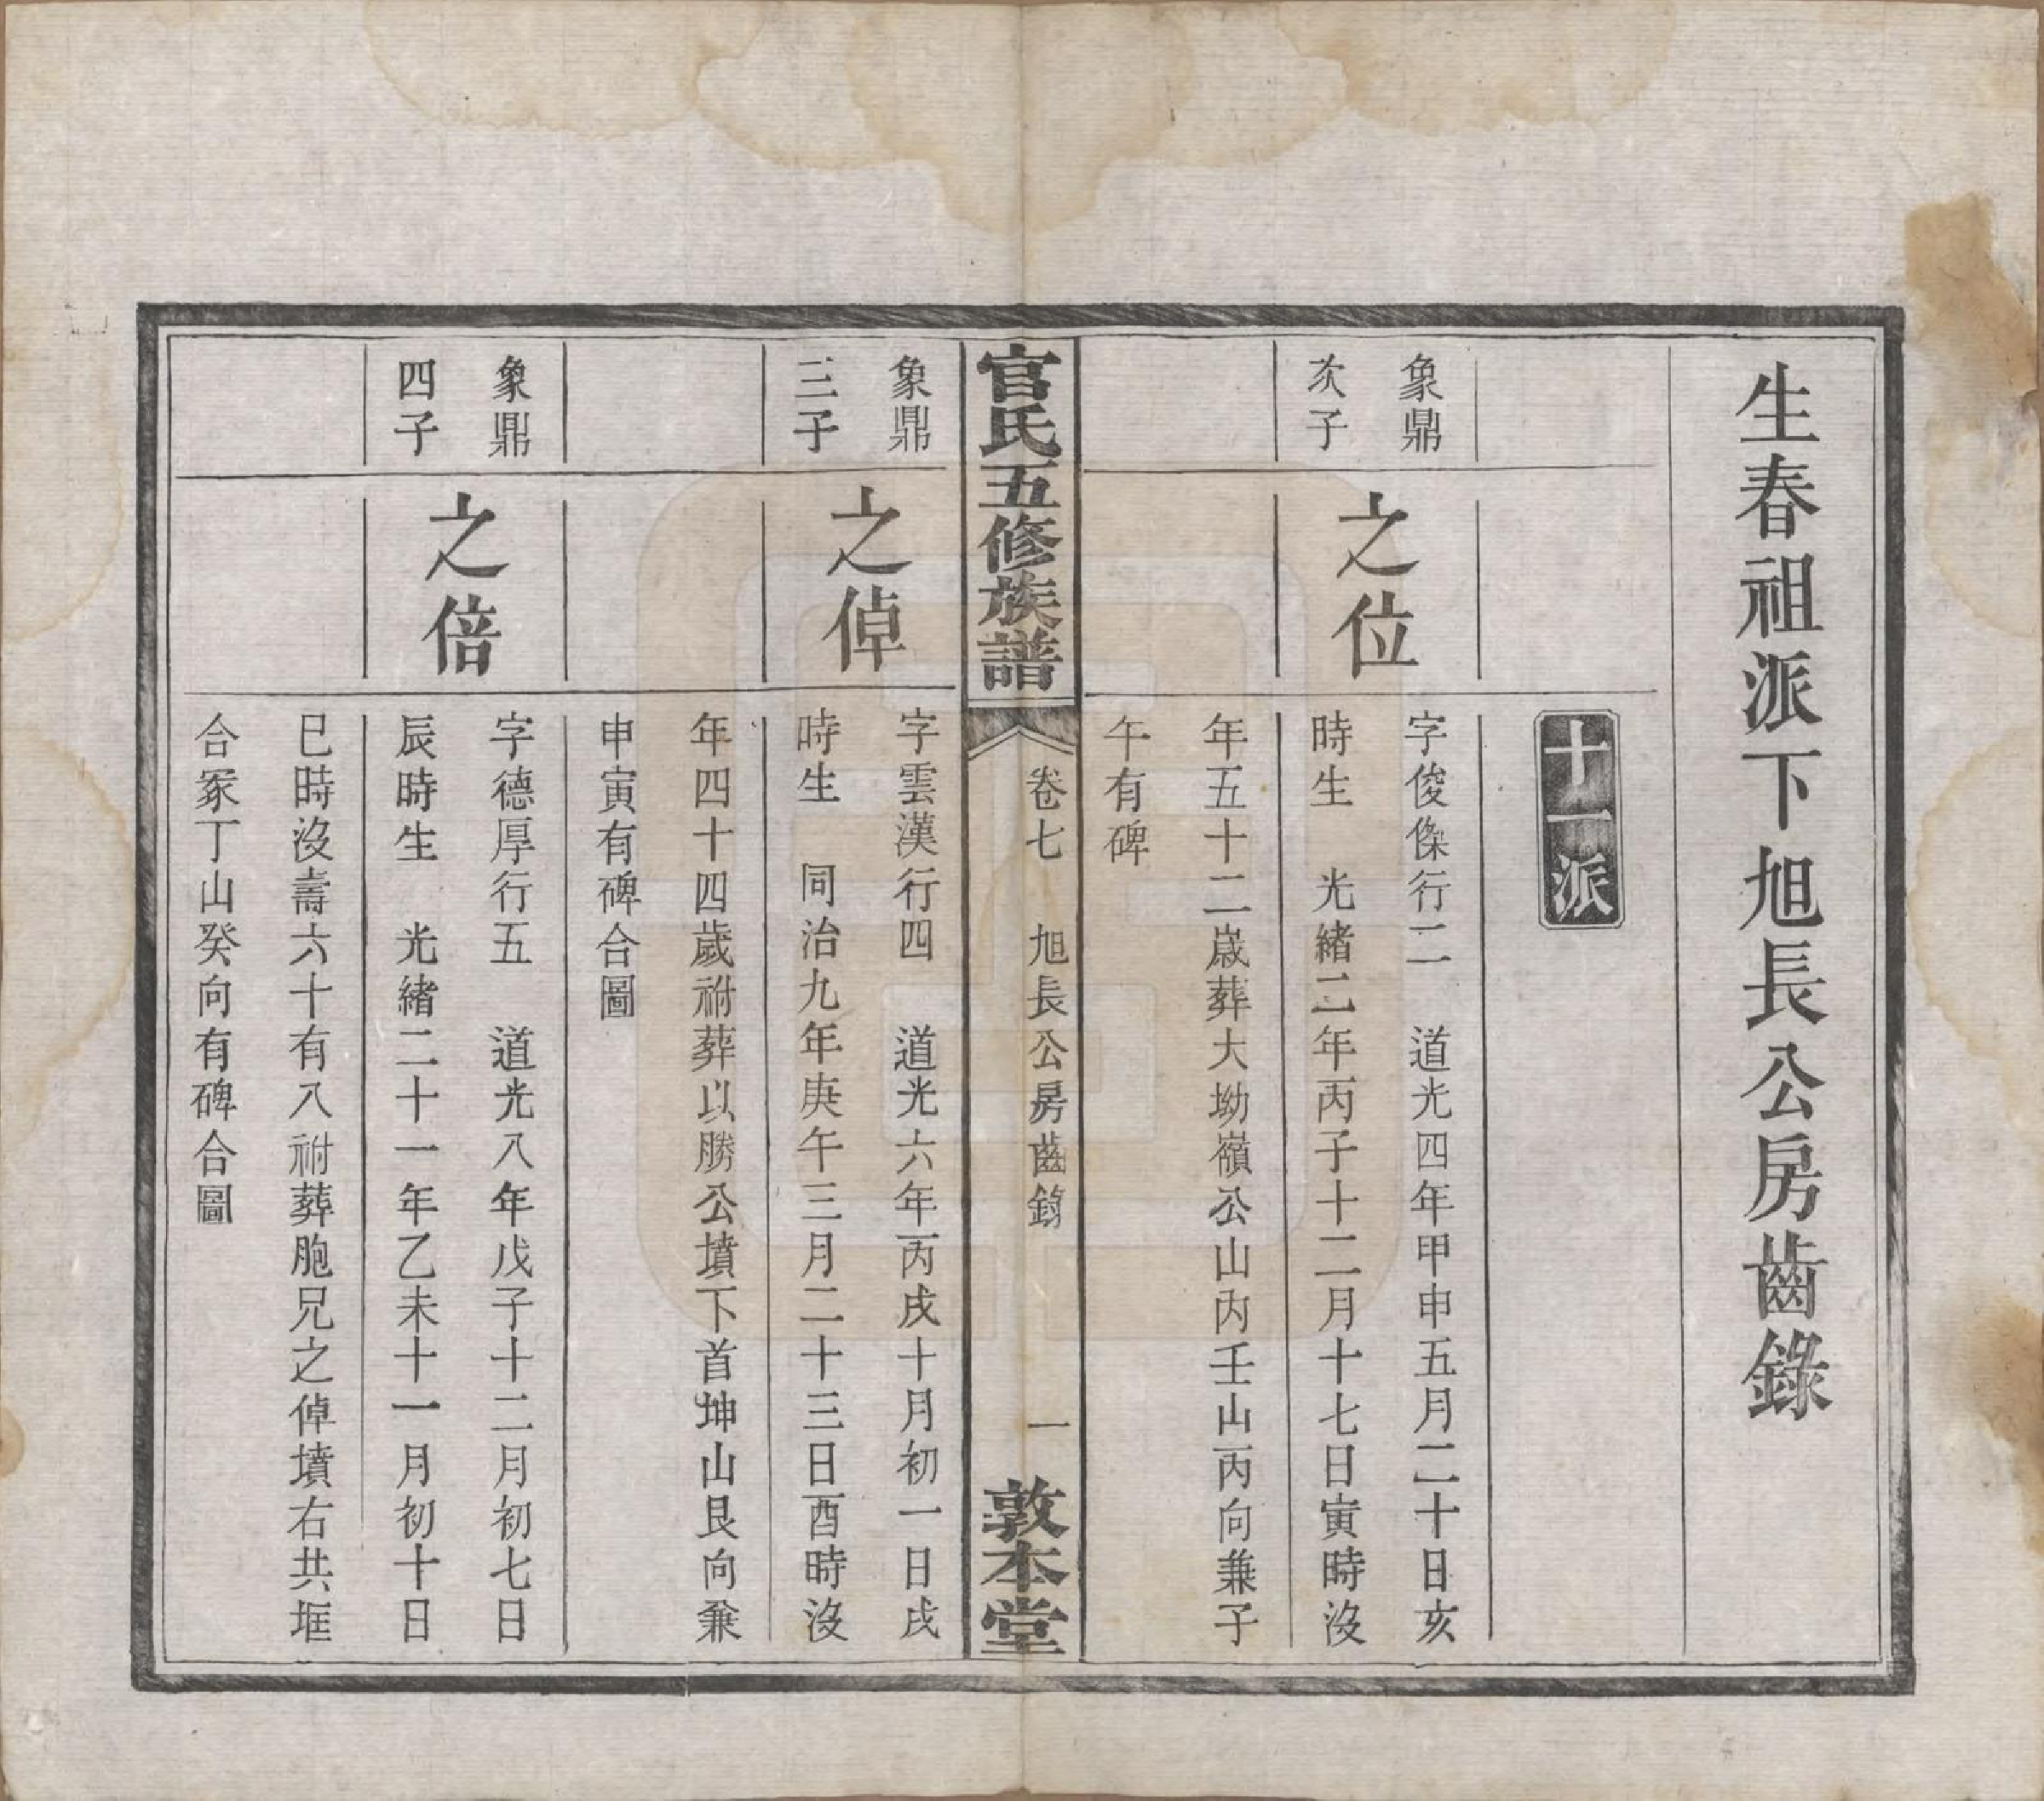 生春祖派下旭長公房齒錄
十一派
象鼎
次子
之位
字俊傑行二　道光四年甲申五月二十日亥
時生　光緒二年丙子十二月十七日寅時沒
年五十二歲葬大坳嶺公山內壬山丙向兼子
午有碑
官氏五修族譜
卷七　旭長公房齒錄
一
敦本堂
象鼎
三子
之倬
字雲漢行四　道光六年丙戌十月初一日戌
時生　同治九年庚午三月二十三日酉時沒
年四十四歲祔葬以勝公墳下首坤山艮向兼
申寅有碑合圖
象鼎
四子
之倍
字德厚行五　道光八年戊子十二月初七日
辰時生　光緒二十一年乙未十一月初十日
巳時沒壽六十有八祔葬胞兄之倬墳右共堆
合冢丁山癸向有碑合圖